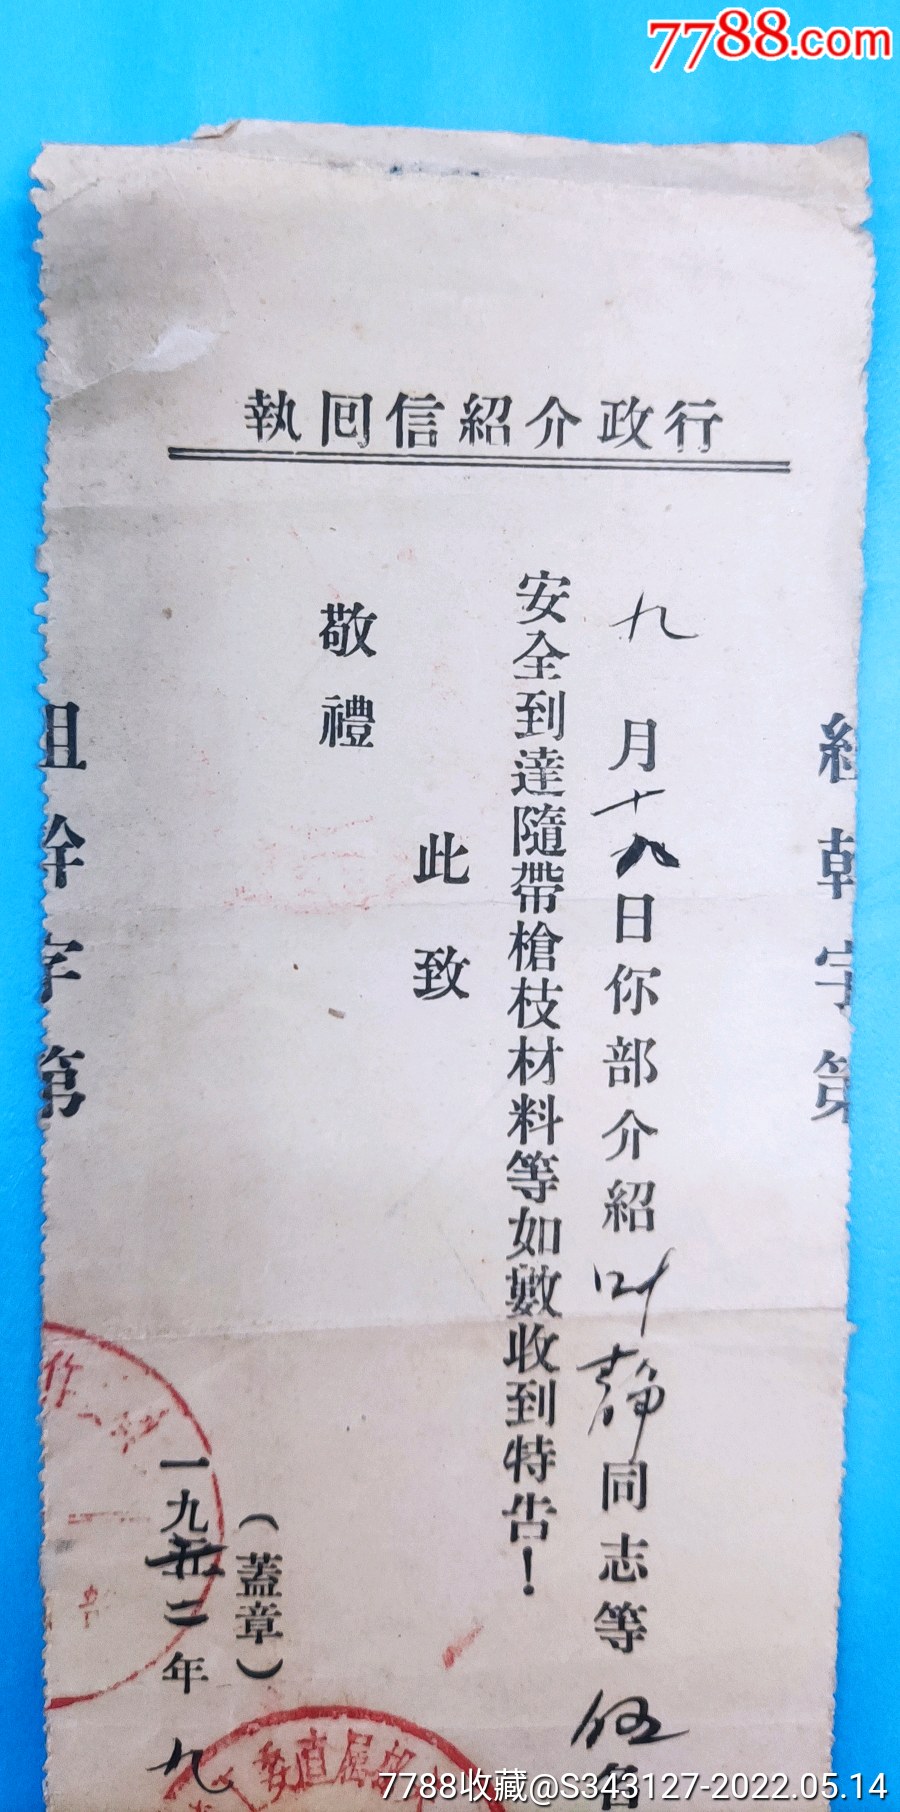 7788.com
行政介紹信回執
組幹字第
九月十八日你部介紹叶靜同志等伍名
安全到達隨帶槍枝材料等如數收到特告！
此致
敬禮
（蓋章）
一九五二年九
組幹字第
委直属
7788收藏@S343127-2022.05.14